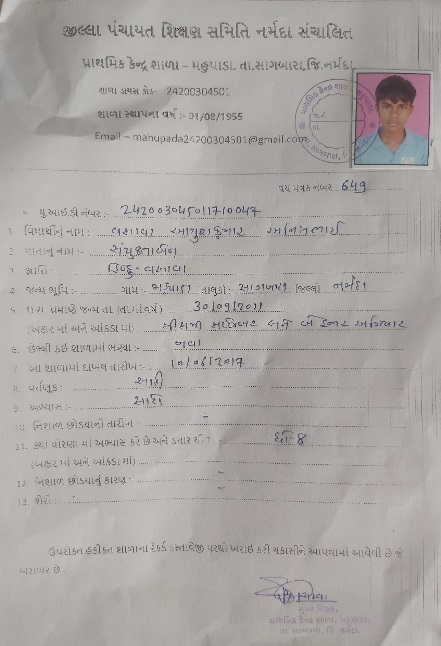 જીલ્લા પંચાયત શિક્ષણ સમિતિ નર્મદા સંચાલિત
પ્રાથમિક કેન્દ્ર શાળા - મહુપાડા. તા.સાગબારા,જિ.નર્મદા
શાળા ડાયસ કોડ- 2420030450
શાળા સ્થાપના વર્ષ :- 01/08/1955
Email – manupada24200304501@gmail.com
વય પત્રક નંબર 649
યુઆઈડી નંબર:- 242003045011710047
1. વિદ્યાર્થીનું નામ : વસાવા આયુષકુમાર અનિલભાઈ
2. માતાનું નામ :- સંયુક્તાબેન
3. જ્ઞાતિ : હિન્દુ-વસાવા
4. જન્મ ભૂમિ :- ગામ: તાલુકો:- સાગબારા જિલ્લો નર્મદા
5. જન્મ તા.(તા.માં.વર્ષ) 30/09/2011
(અક્ષરમાં અને આંકડામાં) ત્રીસમી સપ્ટેમ્બર બે હજાર અગિયાર
6. છેલ્લી કઈ શાળામાં ભણ્યા:- નવા
7. આ શાળામાં દાખલ તારીખ:- 10/06/2017
8. વર્તણુક: સારી
9. અભ્યાસ:- સારો
10. નિશાળ છોડ્યાનો તારીખ -
11. ક્યા ધોરણમાં અભ્યાસ કરે છે અને ક્યારથી : ધો-8
(અક્ષરમાં અને આંકડામાં)
12. નિશાળ છોડ્યાનું કારણ: -
13. શેરો: -
ઉપરોક્ત હકીકત શાળાના રેકર્ડ દસ્તાવેજી પરથી ખરાઈ કરી ચકાસીને આપવામાં આવેલી છે જે
બરાબર છે.
મુખ્ય શિક્ષક,
પ્રાથમિક કેન્દ્ર શાળા, મહુપાડા.
તા. સાગબારા, જિ. નર્મદા.